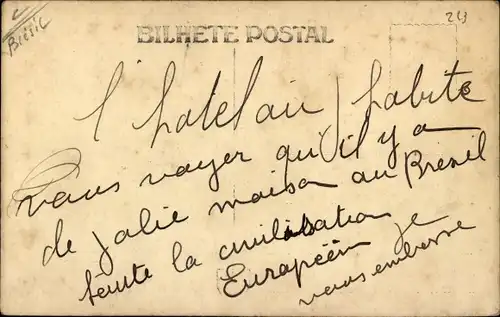 Brésil
24
BILHETE POSTAL
l'hotel ou j'habite
vous voyer qu'il y a
de jolie maison au Brésil
toute la civilisation
Européen je
vous embrasse